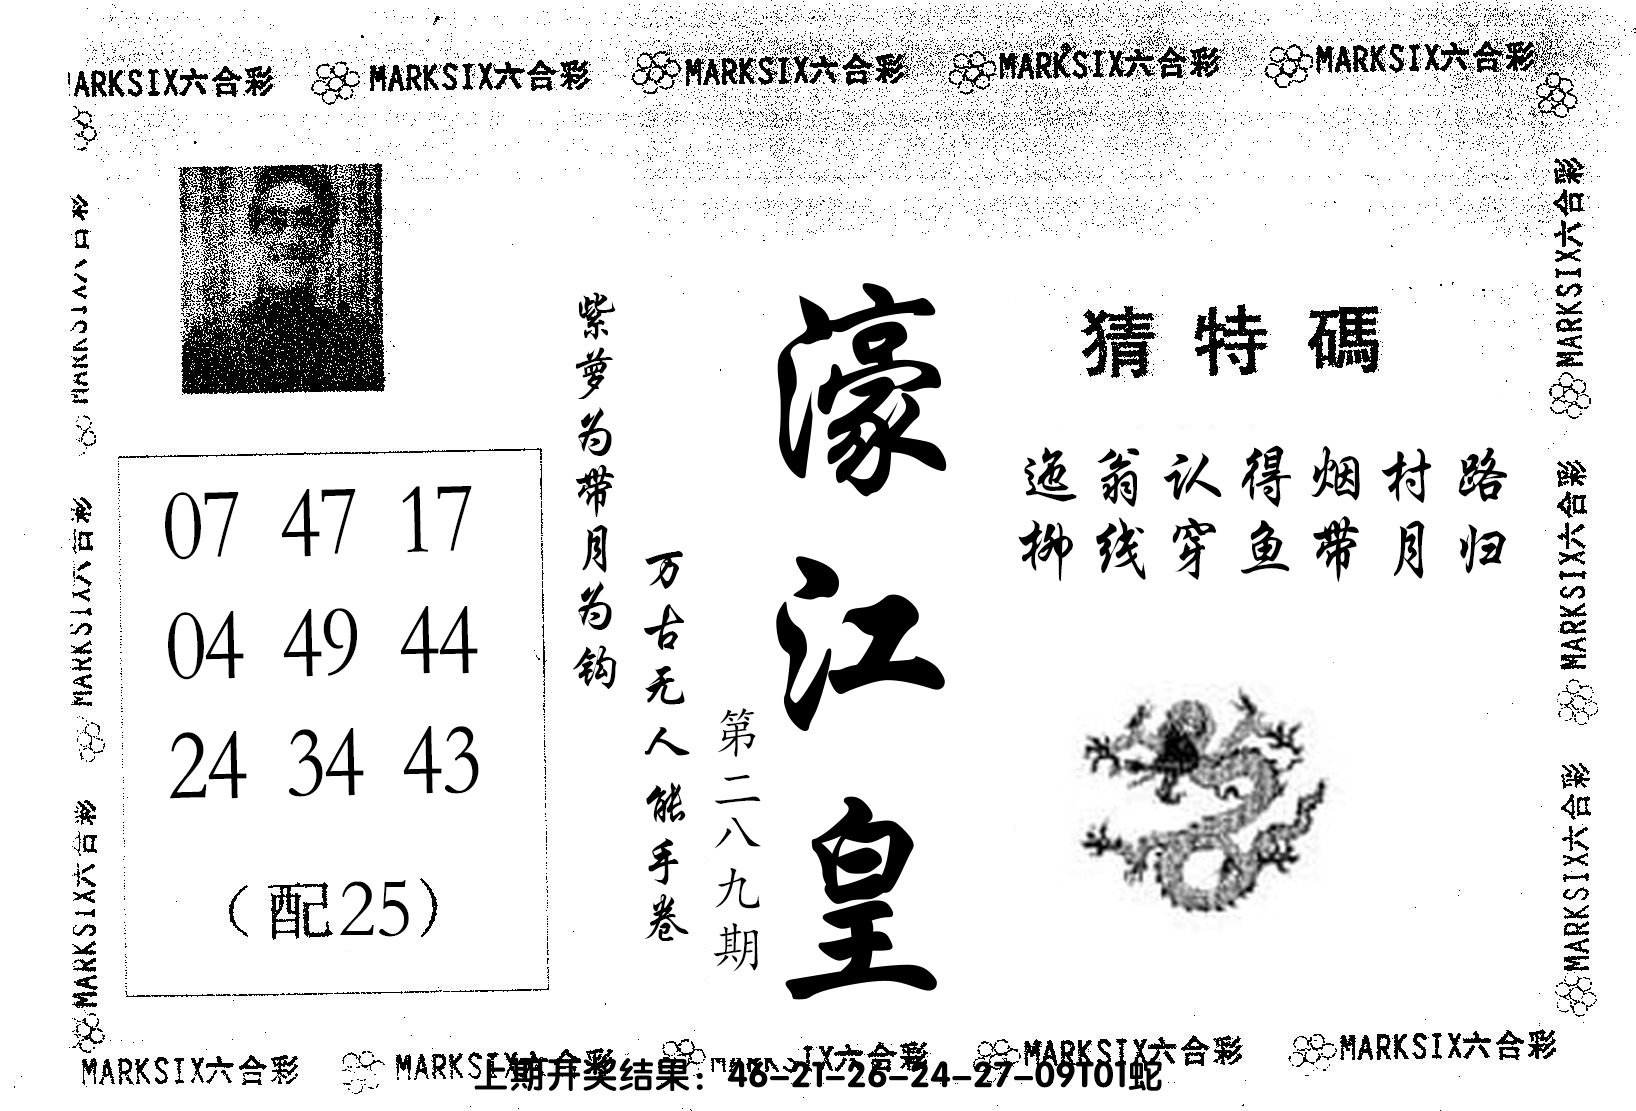 MARKSIX六合彩 MARKSIX六合彩 MARKSIX六合彩 MARKSIX六合彩 MARKSIX六合彩
MARKSIX六合彩
MARKSIX六合彩
MARKSIX六合彩
07 47 17
04 49 44
24 34 43
（配25）
紫萝为带月为钩
万古无人能手卷
第二八九期
濠江皇
猜特碼
迤翁认得烟村路
柳线穿鱼带月归
MARKSIX六合彩
MARKSIX六合彩
MARKSIX六合彩
MARKSIX六合彩 MARKSIX六合彩 MARKSIX六合彩 MARKSIX六合彩 MARKSIX六合彩
上期开奖结果：46-21-26-24-27-09T01蛇